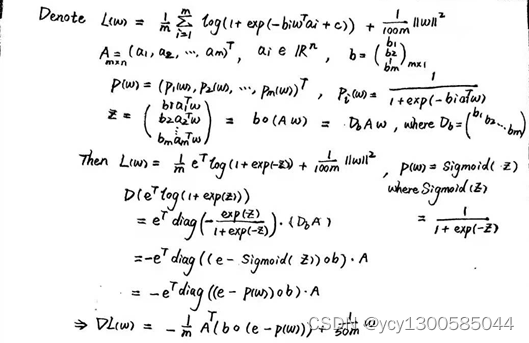 Denote L(w) = 1/m Σ_{i=1}^{m} log(1+exp(-biwᵀai+c)) + 1/100m ||w||²
A_{m×n} = (a₁, a₂, ..., am)ᵀ, ai ∈ ℝⁿ, b = (b₁ b₂ ⋮ bm)_{m×1}
p(w) = (p₁(w), p₂(w), ..., pm(w))ᵀ, pᵢ(w) = 1/(1+exp(-biaᵢᵀw))
z = (b₁a₁ᵀw b₂a₂ᵀw ⋮ bmamᵀw) = b∘(Aw) = D_b A w, where D_b = (b₁ b₂ ⋱ bm)
Then L(w) = 1/m eᵀlog(1+exp(-z)) + 1/100m ||w||², p(w) = sigmoid(z)
where Sigmoid(z) = 1/(1+exp(-z))
D(eᵀlog(1+exp(z)))
= eᵀdiag(-exp(z)/(1+exp(-z)))·(D_b A)
= -eᵀdiag((e - sigmoid(z))∘b)·A
= -eᵀdiag((e - p(w))∘b)·A
⇒ ∇L(w) = -1/m Aᵀ(b∘(e - p(w))) + 1/50m w
CSDN @ycy1300585044